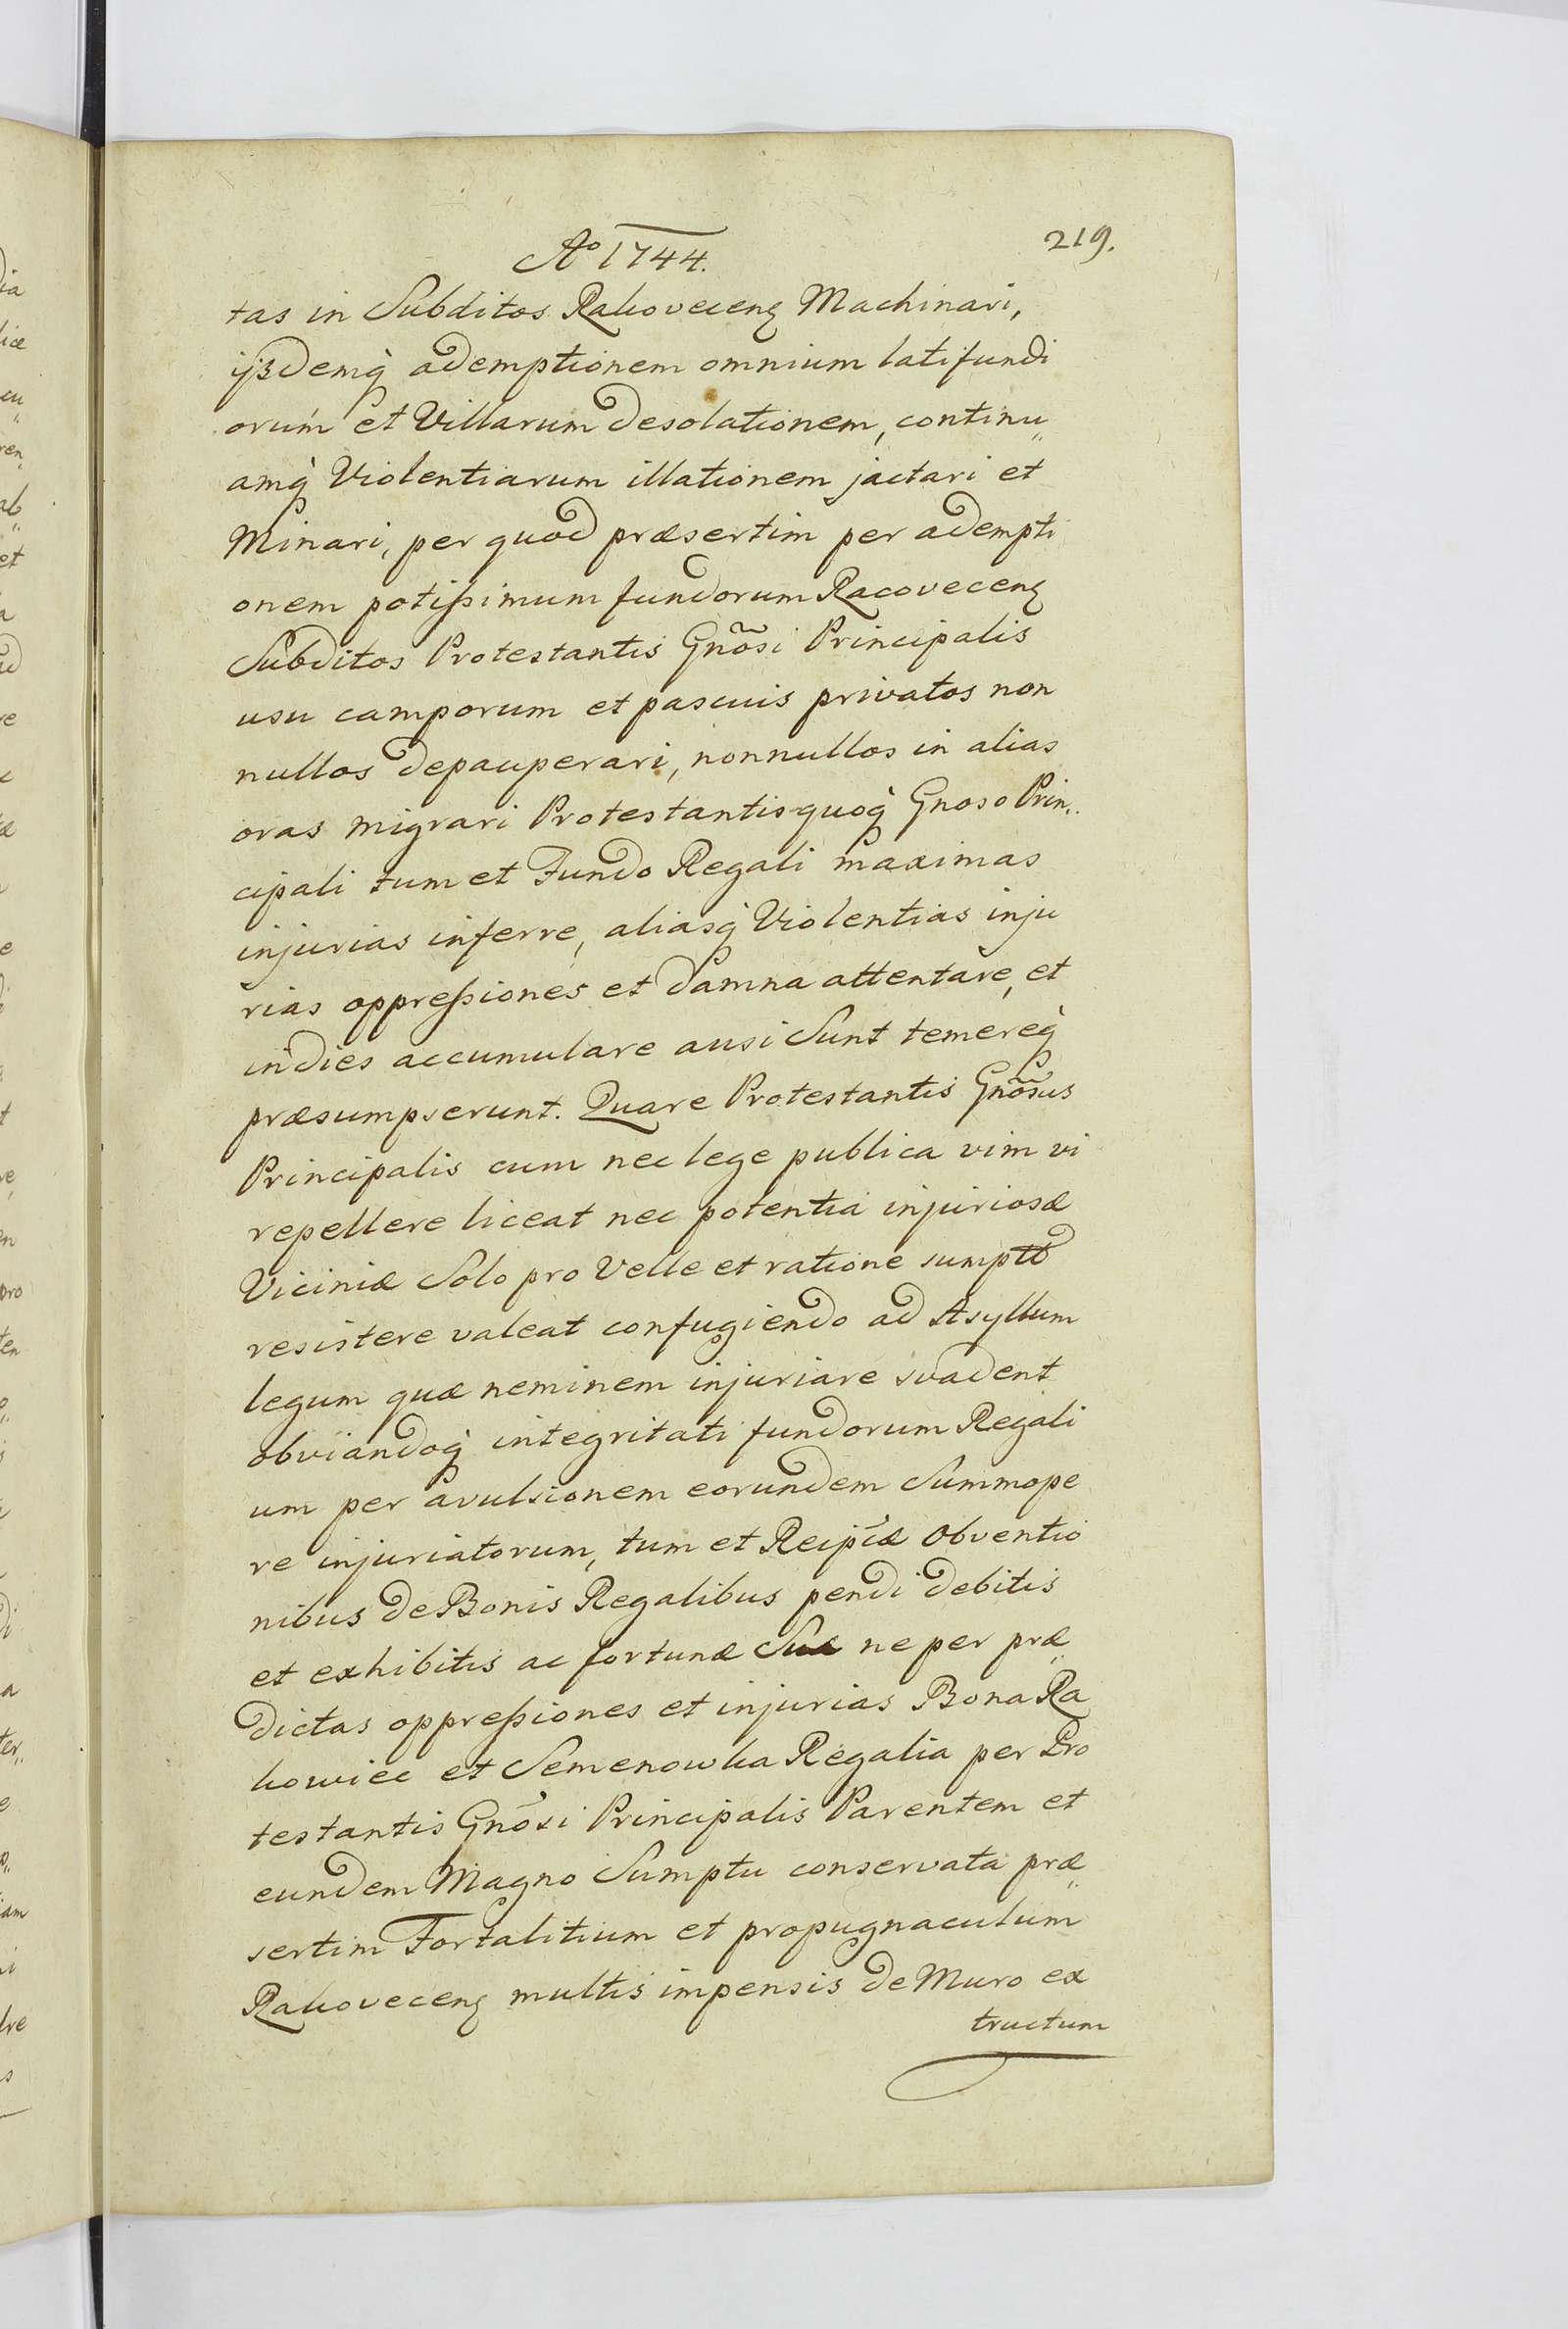 Ao 1744.
219.
tas in Subditos Rakovecenȝ Machinari,
ijsdemq̀ ademptionem omnium latifundi
orum et Villarum desolationem, continu„
amq̀ Violentiarum illationem jactari et
Minari, per quod præsertim per adempti
onem potissimum fundorum Racovecenȝ
Subditos Protestantis Gnõsi Principalis
usu camporum et pascuis privatos non
nullos depauperari, nonnullos in alias
oras migrari Protestantis quoq̀ Gnoso Prin„
cipali tum et Fundo Regali maximas
injurias inferre, aliasq̀ Violentias inju
rias oppressiones et damna attentare, et
indies accumulare ausi Sunt temereq̀
præsumpserunt. Quare Protestantis Gnõsus
Principalis cum nec lege publica vim vi
repellere liceat nec potentia injuriosæ
Viciniæ Solo pro Velle et ratione
resistere valeat confugiendo ad Asyllum
legum quæ neminem injuriare svadent
obviandoq̀ integritati fundorum Regali
um per avulsionem eorundem Summope
re injuriatorum, tum et Reipcæ Obventio
nibus de Bonis Regalibus pendi debitis
et exhibitis ac fortunæ Suæ ne per præ„
dictas oppressiones et injurias Bona Ra
kowiec et Semenowka Regalia per Pro
testantis Gnõsi Principalis Parentem et
eundem Magno Sumptu conservata præ„
sertim Fortalitium et propugnaculum
Rakovecenȝ multis impensis de Muro ex
tructum